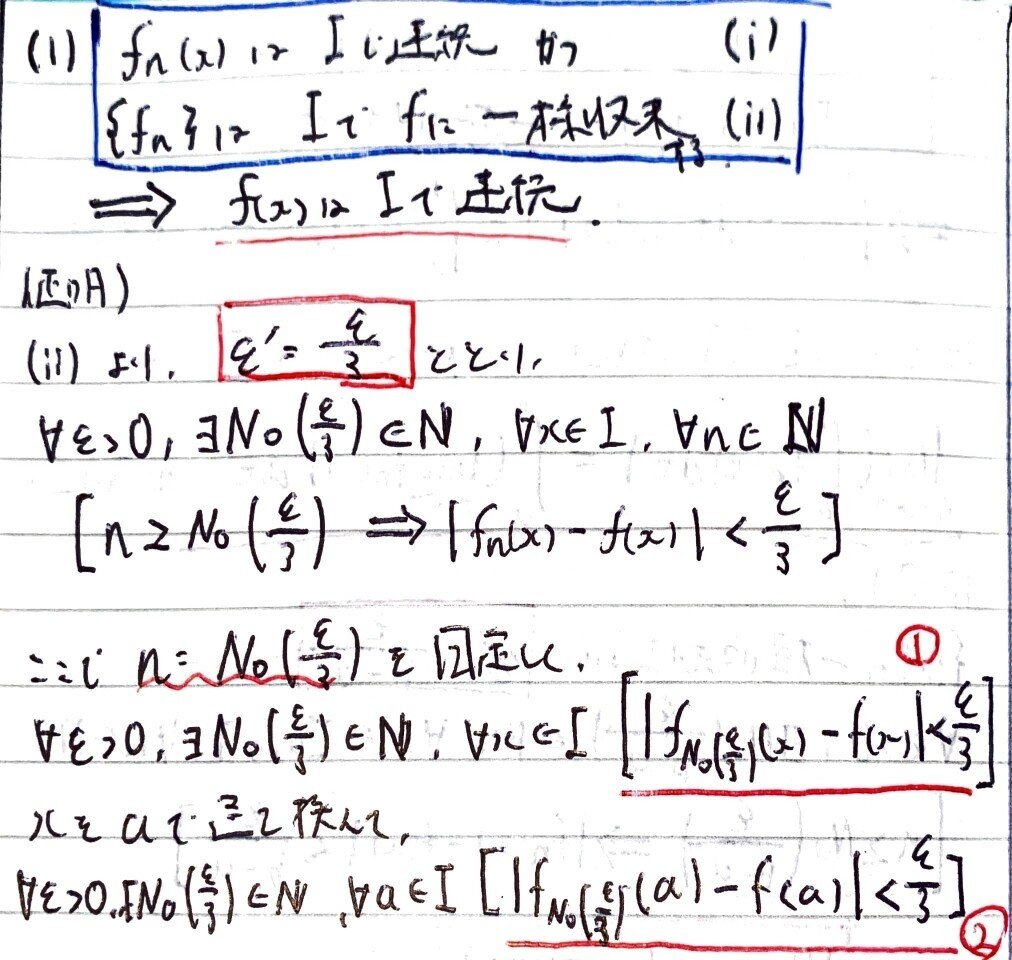 (1) f_n(x) は I で連続 かつ (i)
{f_n} は I で f に 一様収束する. (ii)
⟹ f(x) は I で 連続.
(証明)
(ii) より, ε' = ε/3 ととり,
∀ε>0, ∃N₀(ε/3) ∈ N, ∀x∈I, ∀n∈ℕ
[n ≥ N₀(ε/3) ⟹ |f_n(x) - f(x)| < ε/3]
ここで n = N₀(ε/3) と 固定し. ①
∀ε>0, ∃N₀(ε/3) ∈ ℕ, ∀x∈I [|f_{N₀(ε/3)}(x) - f(x)| < ε/3]
x を a で 置き換えて,
∀ε>0, ∃N₀(ε/3) ∈ ℕ, ∀a∈I [|f_{N₀(ε/3)}(a) - f(a)| < ε/3] ②